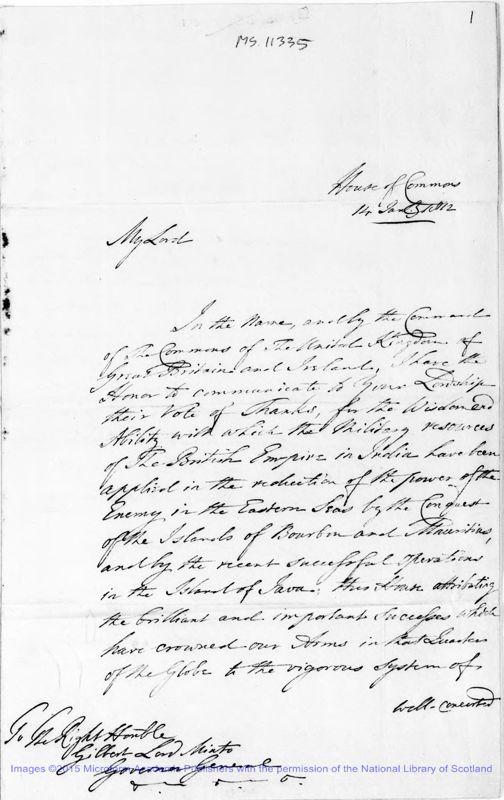 1
MS. 11335
House of Commons
14 Jany 1812
My Lord
In the Name, and by the Command
of The Commons of The United Kingdom of
Great Britain and Ireland, I have the
Honor to communicate to Your Lordship
their Vote of Thanks, for the Wisdom and
Ability with which the Military resources
of The British Empire in India have been
applied in the reduction of the power of the
Enemy in the Eastern Seas by the Conquest
of the Islands of Bourbon and Mauritius,
and by the recent successful operations
in the Island of Java; this House attributing
the brilliant and important Successes which
have crowned our Arms in that Quarter
of the Globe to the vigorous System of
well-concerted
To The Right Honble
Gilbert Lord Minto
Governor General
Images ©2015 Microform Academic Publishers with the permission of the National Library of Scotland